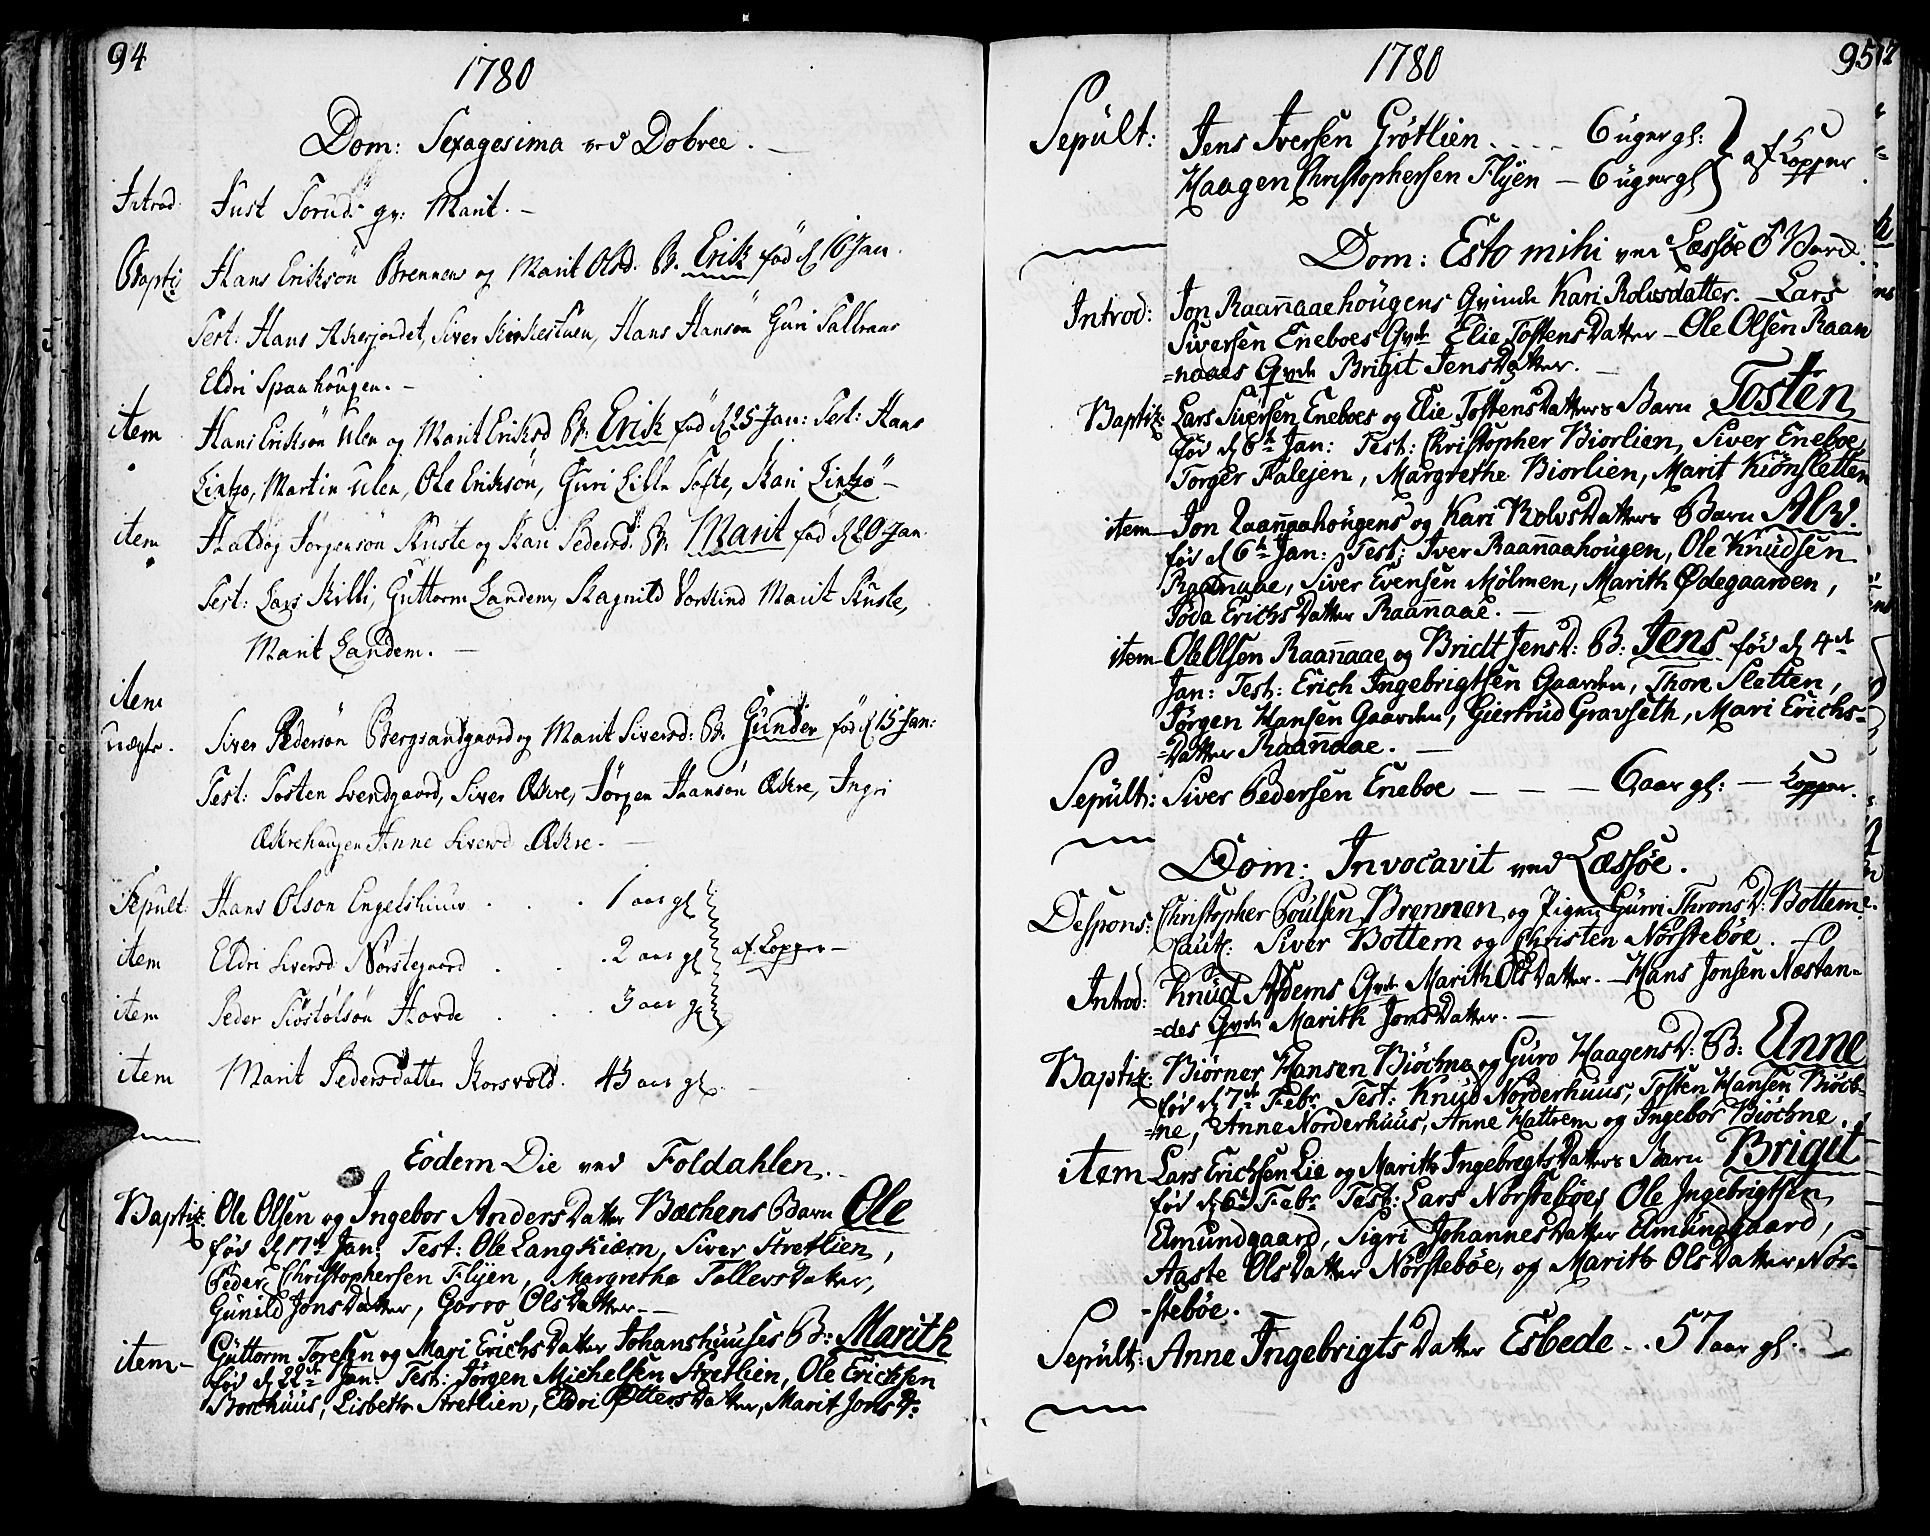 94
1780
Dom: Sexagesima ved Dobree.
Introd: Just Toruds gv: Marit.
Baptiz: Hans Erikson Brennen og Marit Olsd. B. Erik fød d 16 Jan.
Test: Hans Akerjordet, Siver Kirkestuen, Hans Hanson Guri
Eldri Spaahougen.
item Hans Erikson Ulen og Marit Eriksd B: Erik fød d 25 Jan: Test: Hans
Lintzo, Martin Ulen, Ole Erikson, Guri Lille Tofte, Kari Lintzo
item Haldog Jørgenson Kuste og Kari Pedersd. B. Marit fød d 20 Jan.
Test: Lars Killi, Guttorm Landem, Ragnild Marit Kuste,
Marit Landem.
item
uægte. Siver Pederson Bergsandgaard og Marit Siversd: B. Gunder fød d 15 Jan:
Test: Tosten Svendgaard, Siver Økre, Jørgen Hanson Økre, Ingri
Økrehaugen Anne Siversd Økre.
Sepult: Hans Olson Engelshuus . . . 1 aar gl
item Eldri Siversd Norstegaard . . . 2 aar gl af Kopper
item Peder Hovde . . . 3 aar gl
item Marit Pedersdatter Korsvold. 43 aar gl.
Eodem Die ved Foldahlen.
Baptiz: Ole Olsen og Ingebor Anders Datter Bæckens Barn Ole
fød d 17de Jan: Test: Ole Langkiærn, Siver Stretlien,
Peder Christophersen Flÿen, Margrethe Tollevs Datter,
Gunild Jons Datter, Gorro Ols Datter.
item Guttorm Toresen og Mari Erichs Datter Johanshuuses B: Marith
fød d 22de Jan. Test: Jørgen Michelsen Stretlien, Ole Erichsen
Borchuus, Lisbeth Stretlien, Eldri Otters Datter, Marit Jons D:
1780
95
Sepult: Jens Iversen Grøtlien . . . . 6 uger gl:
Haagen Christophersen Flÿen — 6 uger gl af Kopper
Dom: Esto mihi ved Læssøe
Introd: Jon Raanaaehougens Qvinde Kari Rolvsdatter. — Lars
Siversen Eneboes Qvde Elie Tostens Datter — Ole Olsen Raan
=naaes Qvde Brigit Jens Datter.
Baptiz: Lars Siversen Eneboes og Elie Tostens Datters Barn Tosten
fød d 6te Jan: Test: Christopher Biorlien, Siver Eneboe,
Torger Faleyen, Margrethe Biorlien, Marit Kiønsletten
item Jon Raanaahougens og Kari Rolvs Datters Barn
fød d 6te Jan: Test: Iver Raanaahougen, Ole Knudsen
Raanaae, Siver Evensen Mølmen, Marith Ødegaarden,
Erichs Datter Raanaae.
item Ole Olsen Raanaae og Bridt Jens D: B: Jens fød d 4de
Jan: Test: Erich Ingebrigtsen Gaarden, Thore Sletten,
Jørgen Hansen Gaarden, Giertrud Gravseth, Mari Erichs=
=Datter Raanaae.
Sepult: Siver Pedersen Eneboe — — — 6 aar gl: — Kopper.
Dom: Invocavit ved Læssøe.
Despons: Christopher Poulsen Brennen og Pigen Gurri Throns D. Bottem.
Caut: Siver Bottem og Christen Norstebøe.
Introd: Knud Qvde Marith Ols Datter. — Hans Jonsen Næstan=
=des Qvde Marith Jons Datter.
Baptiz: Biørner Hansen Biøchne og Guro Haagens D: B: Anne
fød d 7de Febr. Test: Knud Norderhuus, Tosten Hansen Biøch=
=ne, Anne Norderhuus, Anne Hattrem og Ingebor Biøchne.
item Lars Erichsen Lie og Marith Ingebregts Datters Barn Brigit
fød d 6te Febr. Test: Lars Norstebøe, Ole Ingebrigtsen
Elmundgaard, Sigri Johannes Datter Elmundgaard,
Aaste Ols Datter Norstebøe, og Marith Ols Datter Nor=
=stebøe.
Sepult: Anne Ingebrigts Datter Esbede . . 57 aar gl.